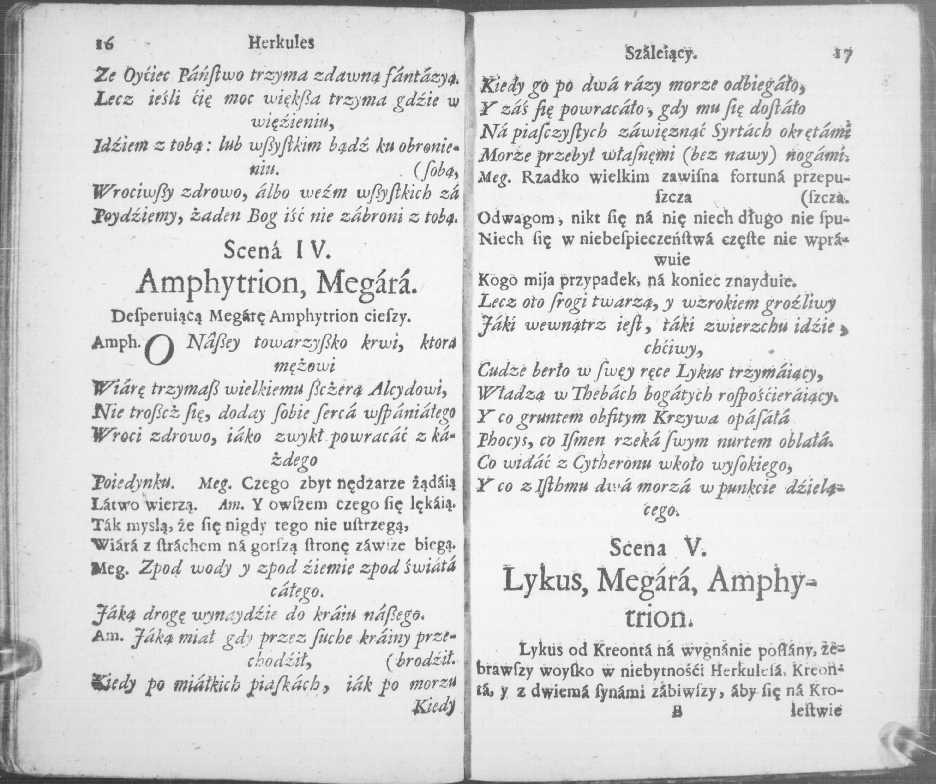 16 Herkules
Ze Oyćiec Páńſtwo trzyma zdawną fántázyą.
Lecz ieśli ćię moc więkſza trzyma gdźie w
więźieniu,
Idźiem z tobą: lub wſzyſtkim bądź ku obronie-
niu. (ſobą,
Wrociwſzy zdrowo, álbo weźm wſzyſtkich zá
Poydźiemy, żaden Bog iść nie zábroni z tobą.
Scená IV.
Amphytrion, Megárá.
Deſperuiącą Megárę Amphytrion cieſzy.
Amph. O Náſzey towarzyſzko krwi, ktora
mężowi
Wiárę trzymaſz wielkiemu ſzczerą Alcydowi,
Nie troſzcż ſię, doday ſobie ſercá wſpániáłego
Wroci zdrowo, iáko zwykł powracáć z ká-
żdego
Poiedynku. Meg. Czego zbyt nędzarze żądáią
Látwo wierzą. Am. Y owſzem czego ſię lękáią.
Ták myslą, że ſię nigdy tego nie uſtrzegą,
Wiárá z ſtráchem ná gorſzą ſtronę záwſze biegą.
Meg. Zpod wody y zpod źiemie zpod świátá
cáłego.
Jáką drogę wynaydźie do kráiu náſzego.
Am. Jáką miał gdy przez ſuche kráiny prze-
chodźił, (brodźił.
Kiedy po miáłkich piaſkách, iák po morzu
Kiedy
Száleiący. 17
Kiedy go po dwá rázy morze odbiegáło,
Y záś ſię powracáło, gdy mu ſię doſtáło
Ná piaſczyſtych záwięznąć Syrtách okrętámi
Morze przebył właſnęmi (bez nawy) nogámi.
Meg. Rzadko wielkim zawiſna fortuná przepu-
ſzcza (ſzcza.
Odwagom, nikt ſię ná nię niech długo nie ſpu-
Niech ſię w niebeſpieczeńſtwá częſte nie wprá-
wuie
Kogo mija przypadek, ná koniec znayduie.
Lecz oto ſrogi twarzą, y wzrokiem groźliwy
Jáki wewnątrz ieſt, táki zwierzchu idźie,
chćiwy,
Cudze berło w ſwęy ręce Lykus trzymáiący,
Władzą w Thebách bogátych roſpośćieráiący.
Y co gruntem obfitym Krzywa opáſáłá
Phocys, co Iſmen rzeká ſwym nurtem oblałá.
Co widáć z Cytheronu wkoło wyſokiego,
Y co z Iſthmu dwá morzá w punkcie dźielą-
cego.
Scena V.
Lykus, Megárá, Amphy-
trion.
Lykus od Kreontá ná wygnánie poſłány, że-
brawſzy woyſko w niebytnośći Herkuleſá, Kreon-
tá, y z dwiemá ſynámi zábiwſzy, áby ſię ná Kro-
B leſtwie